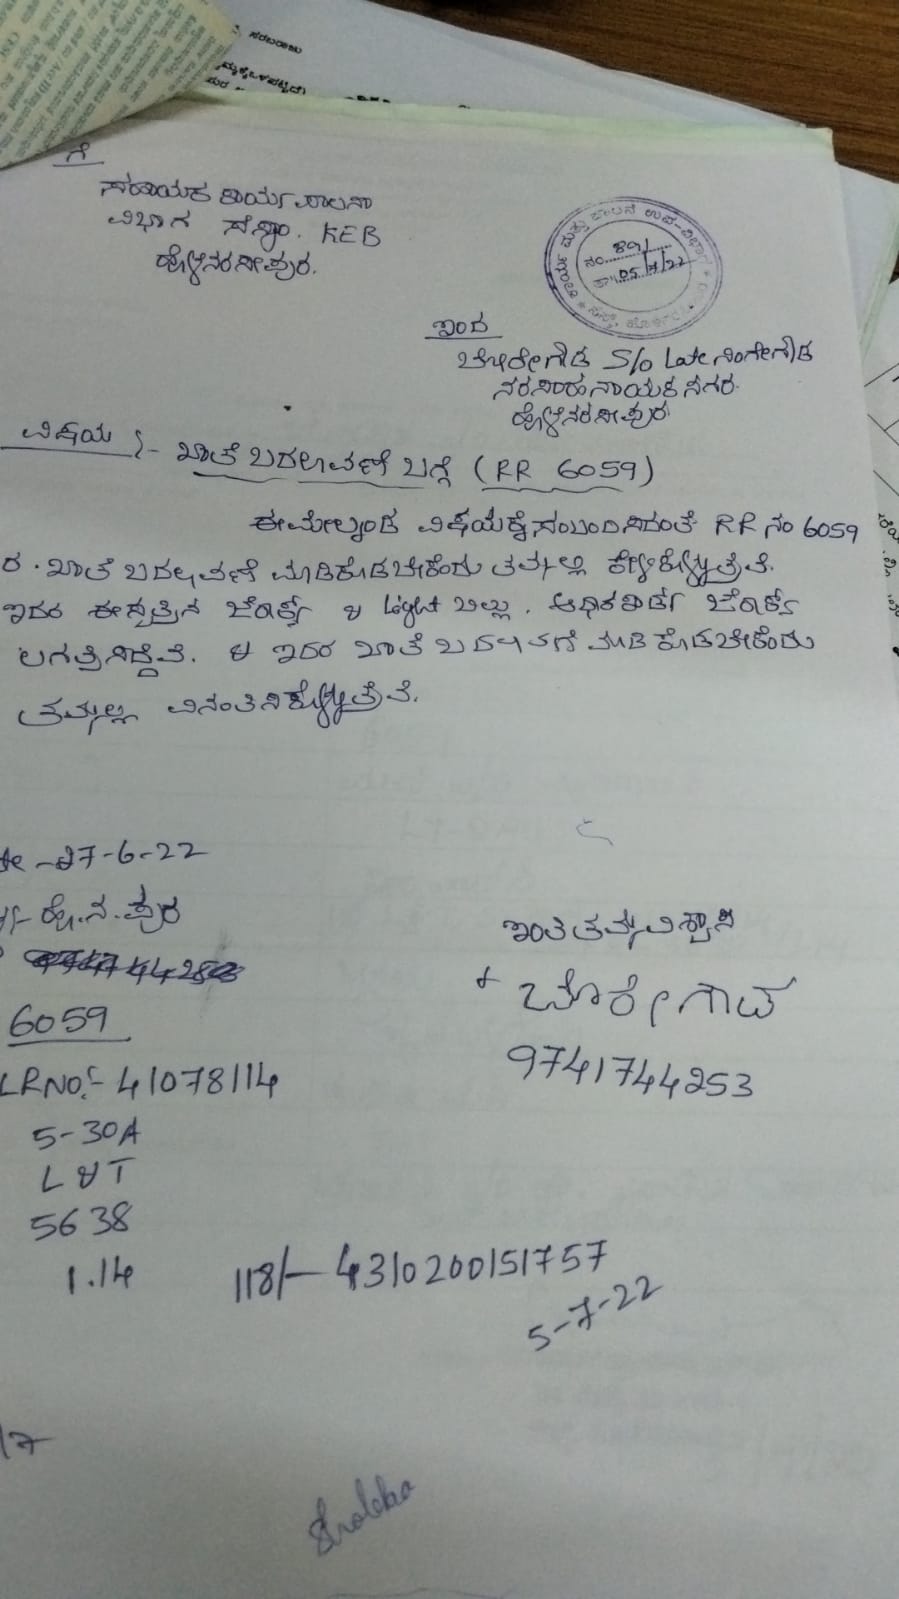 ಸರಬರಾಜು
ಗೆ
ಸಹಾಯಕ ಕಾರ್ಯ ಪಾಲನಾ
ವಿಭಾಗ KEB
ಹೊಳೆನರಸೀಪುರ.
ಕಾರ್ಯ ಮತ್ತು ಪಾಲನೆ ಉಪ-ವಿಭಾಗ
ನಂ. 891
ತಾ: 05/7/22
ಇಂದ
ಬೋರೇಗೌಡ S/o Late ನಿಂಗೇಗೌಡ
ನರಸಿಂಹನಾಯಕ ನಗರ
ಹೊಳೆನರಸೀಪುರ
ವಿಷಯ :- ಖಾತೆ ಬದಲಾವಣೆ ಬಗ್ಗೆ (RR 6059)
ಈ ಮೇಲ್ಕಂಡ ವಿಷಯಕ್ಕೆ ಸಂಬಂದಿಸಿದಂತೆ RR ನಂ 6059
ರ. ಖಾತೆ ಬದಲಾವಣೆ ಮಾಡಿಕೊಡಬೇಕೆಂದು ತಮ್ಮಲ್ಲಿ ಕೇಳಿಕೊಳ್ಳುತ್ತೇವೆ.
ಇದರ ಈಸ್ವತ್ತಿನ ಜೆರಾಕ್ಸ್ & Light ಬಿಲ್ಲು. ಆಧಾರಕಾರ್ಡ್ ಜೆರಾಕ್ಸ್
ಲಗತ್ತಿಸಿದ್ದೆವೆ. & ಇದರ ಖಾತೆ ಬದಲಾವಣೆ ಮಾಡಿ ಕೊಡಬೇಕೆಂದು
ತಮ್ಮಲ್ಲಿ ವಿನಂತಿಸಿಕೊಳ್ಳುತ್ತೆವೆ.
27-6-22
ಹೊ.ನ.ಪುರ
ಇಂತಿ ತಮ್ಮ ವಿಶ್ವಾಸಿ
ಬೊರೇಗೌಡ
6059
9741744253
LRNO:- 41078114
5-30A
L&T
5638
1.14
118/- 4310200151757
5-7-22